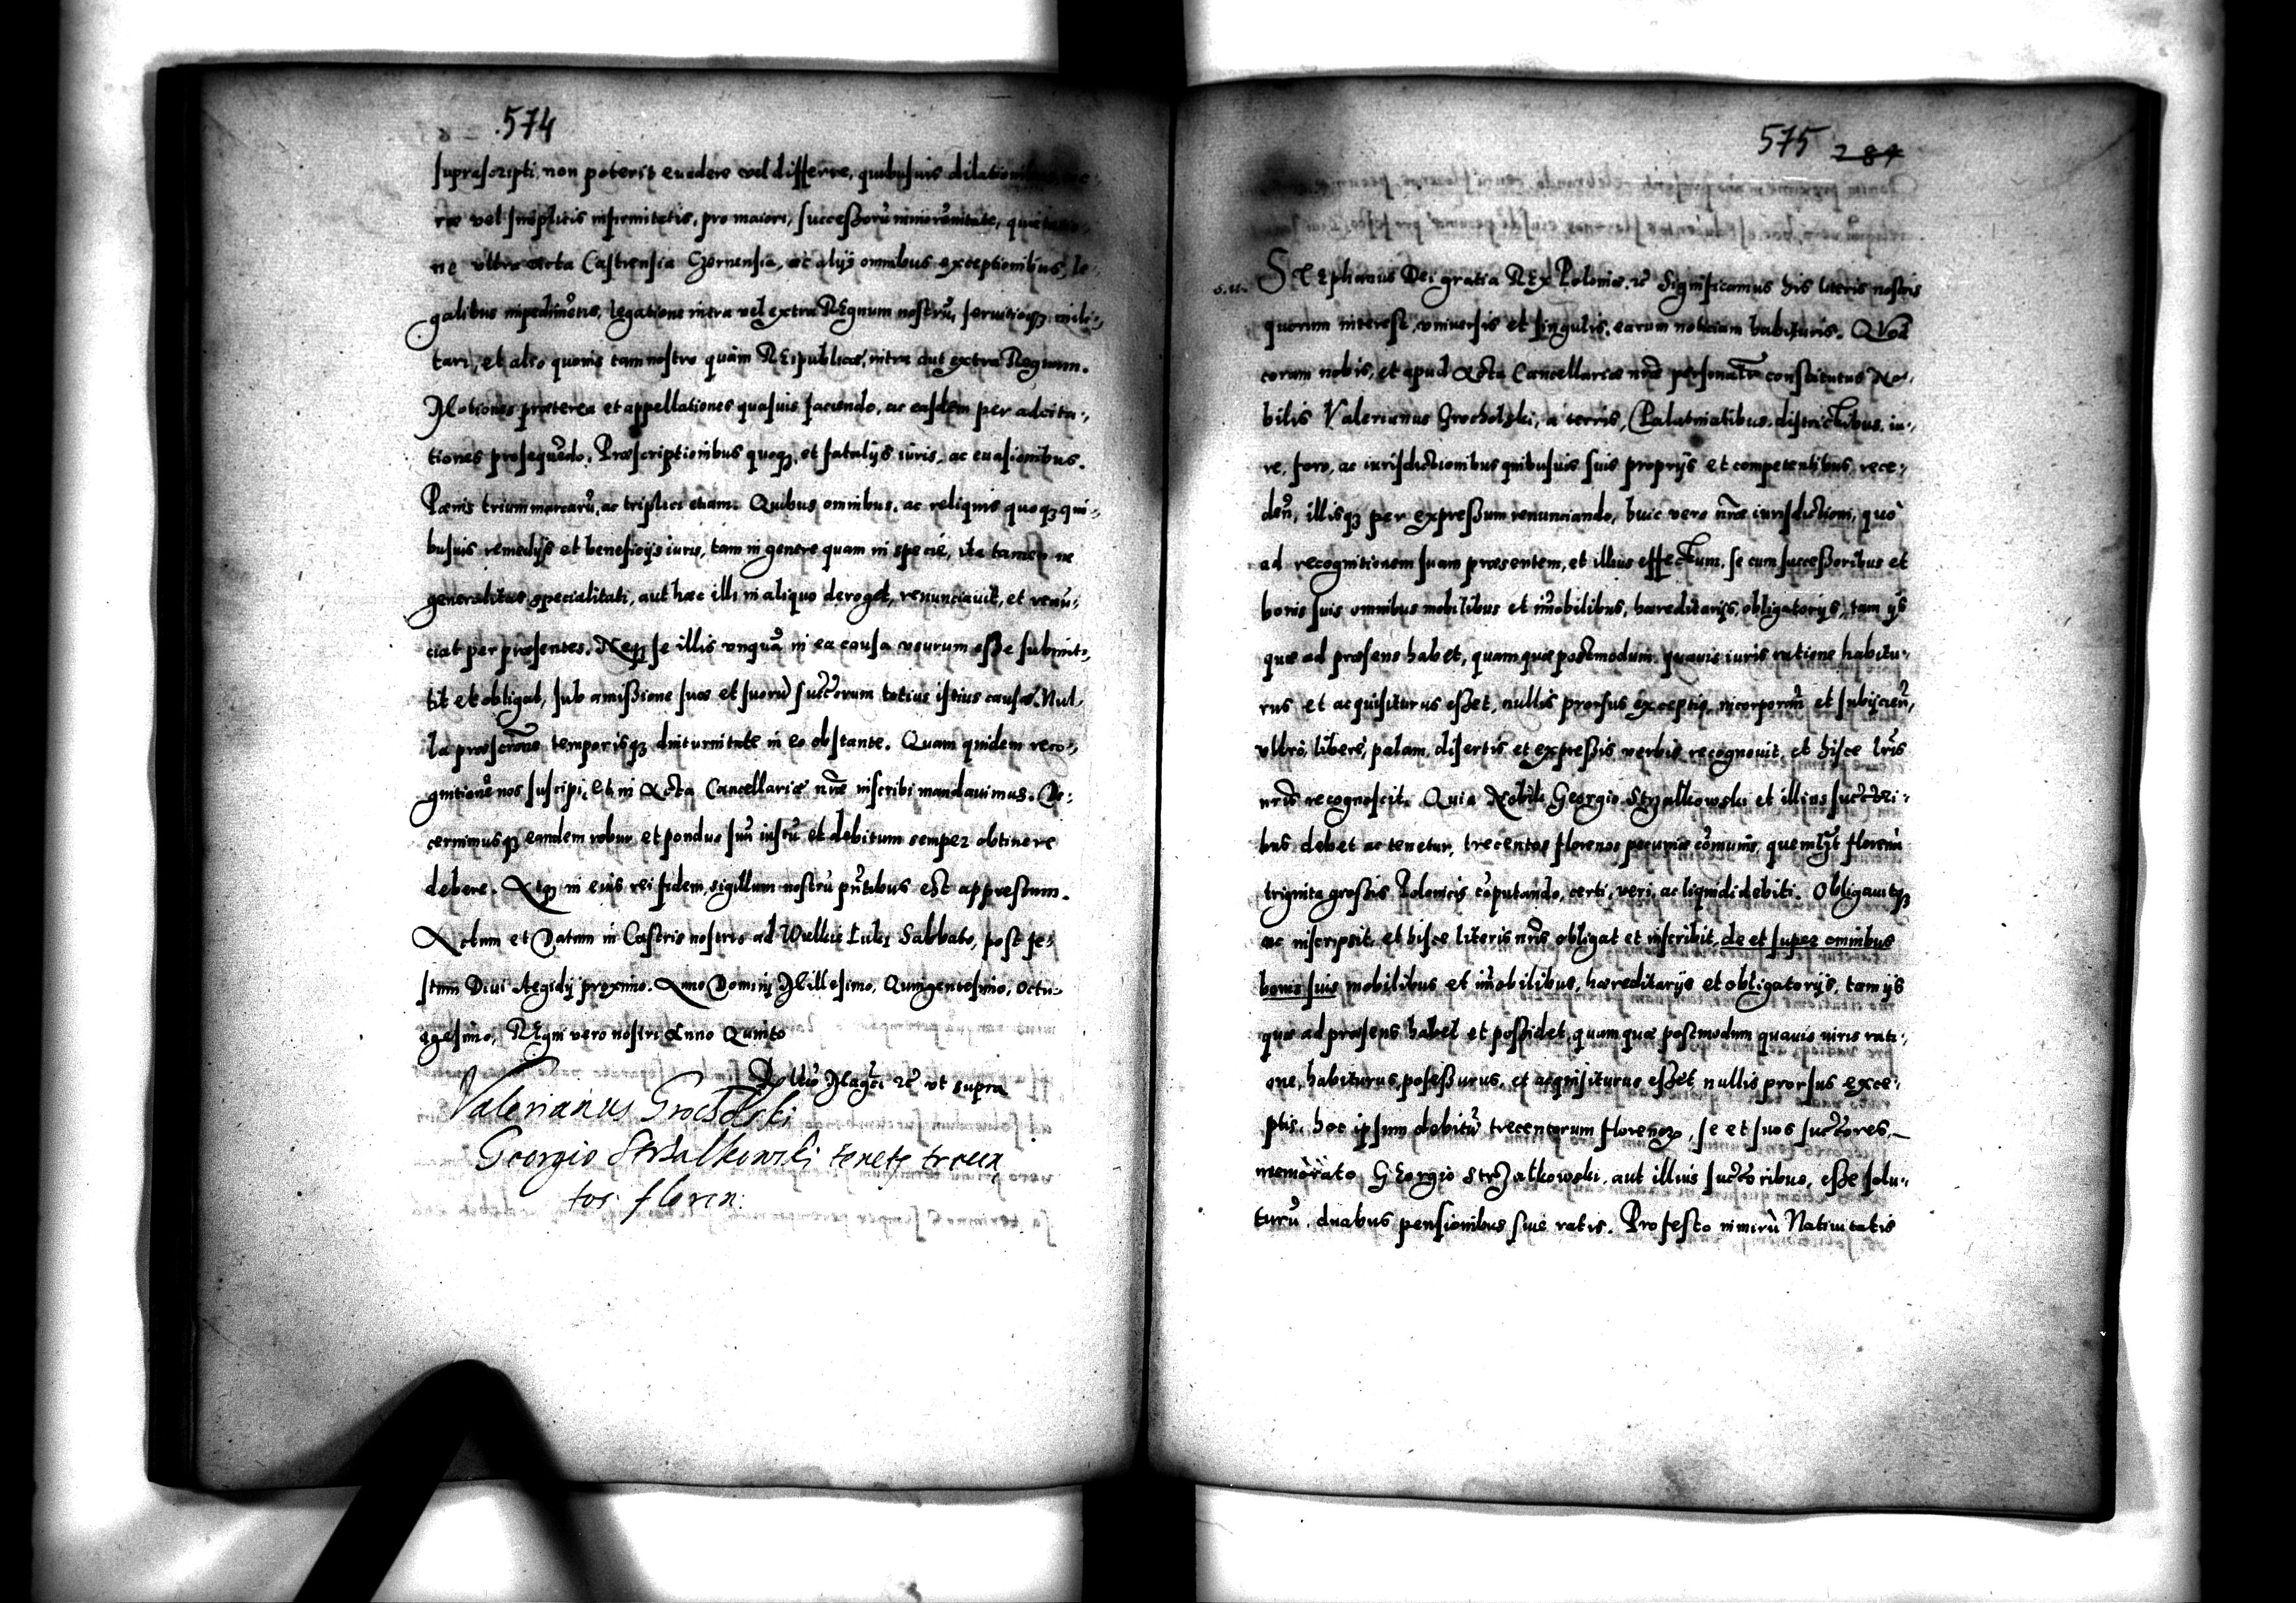 .574
suprascripti, non poterit euadere vel differre, quibusuis dilationibus
ræ vel simplicis infirmitatis, pro maiori, successorũ minorẽnitate,
ne vltra Acta Castrensia ac alijs omnibus exceptionibus, le-
galibus impedimẽtis, legatione intra vel extra REgnum nostrũ, seruitioqȝ mili-
tari, et alio quouis tam nostro quàm REipublicæ, intra aut extra Regnum.
Motiones præterea et appellationes quasuis faciendo, ac easdem per adcita-
tiones prosequẽdo. Præscriptionibus quoqȝ, et fatalijs iuris, ac euasionibus.
Pænis trium marcarũ, ac triplici etiam. Quibus omnibus, ac reliquis quoqȝ qui-
busuis remedijs et beneficijs iuris, tam in genere quam in specie, ita tamen ne
generalitas specialitati, aut hæc illi in aliquo deroget, renunciauit, et renũ-
ciat per præsentes. Neqȝ se illis vnquã in ea causa vsurum esse submit-
tit et obligat, sub amissione suæ et suorũ succ̃orum totius istius causæ. Nul-
la præscriptione temporisqȝ diuturnitate in eo obstante. Quam quidem reco-
gnitionẽ nos suscipi, et in Acta Cancellariæ nr̃æ inscribi mandauimus. De-
cernimusqȝ eandem robur et pondus suũ iustũ et debitum semper obtinere
debere. Atqȝ in eius rei fidem, sigillum nostrũ pñtibus est appressum.
Actum et Datum in Castris nostris ad Wielkie Luki Sabbato, post fe-
stum Diui Aegidij proximo. Anno Domini Millesimo, Quingentesimo, Octu-
agesimo, REgni vero nostri Anno Quinto
ut supra
Valerianus Grocholski
Georgio Strzalkowski tenetr trecen
tos floren:
575 284
STEphanus Dei gratia REx Poloniæ. &c Significamus his literis nostris
quorum interest, vniuersis et singulis, earum noticiam habituris. QVod
coram nobis, et apud Acta Cancellariæ nr̃æ personalr̃ constitutus No-
bilis Valerianus Grocholski, a terris, Palatinatibus, districtibus, iu-
re, foro, ac iurisdictionibus quibusuis suis proprijs et competentibus, rece-
deñ, illisqȝ per expressum renunciando, huic vero nr̃æ iurisdictioni, quò
ad recognitionem suam præsentem, et illius effectum, se cum successoribus et
bonis suis omnibus mobilibus et im̃obilibus, hæreditarijs, obligatorijs, tam ijs
quæ ad præsens habet, quam quæ postmodum, quauis iuris ratione habitu-
rus et acquisiturus esset, nullis prorsus exceptis, incorporañ et subijcieñ,
vltrò, liberè, palam, disertis et expressis verbis recognouit, et hisce lr̃is
nr̃is recognoscit. Quia Nobili Georgio Strzalkowski et illius succ̃ori-
bus debet ac tenetur, trecentos florenos pecuniæ cõmunis, quemlȝt florenũ
triginta grossis Polonicis cõputando, certi, veri, ac liquidi debiti. Obligauitqȝ
ac inscripsit, et hisce literis nr̃is obligat et inscribit, de et super omnibus
bonis suis mobilibus et im̃obilibus, hæreditarijs et obligatorijs, tam ijs
quæ ad præsens habet et possidet, quam quæ postmodum quauis iuris rati-
one, habiturus, possessurus, et acquisiturus esset, nullis prorsus exce-
ptis, hoc ipsum debitũ trecentorum florenoȝ, se et suos succ̃ores,
memorato GEorgio Strzalkowski, aut illius succ̃oribus, esse solu-
turũ, duabus pensionibus siue ratis. Pro festo nimirũ Natiuitatis